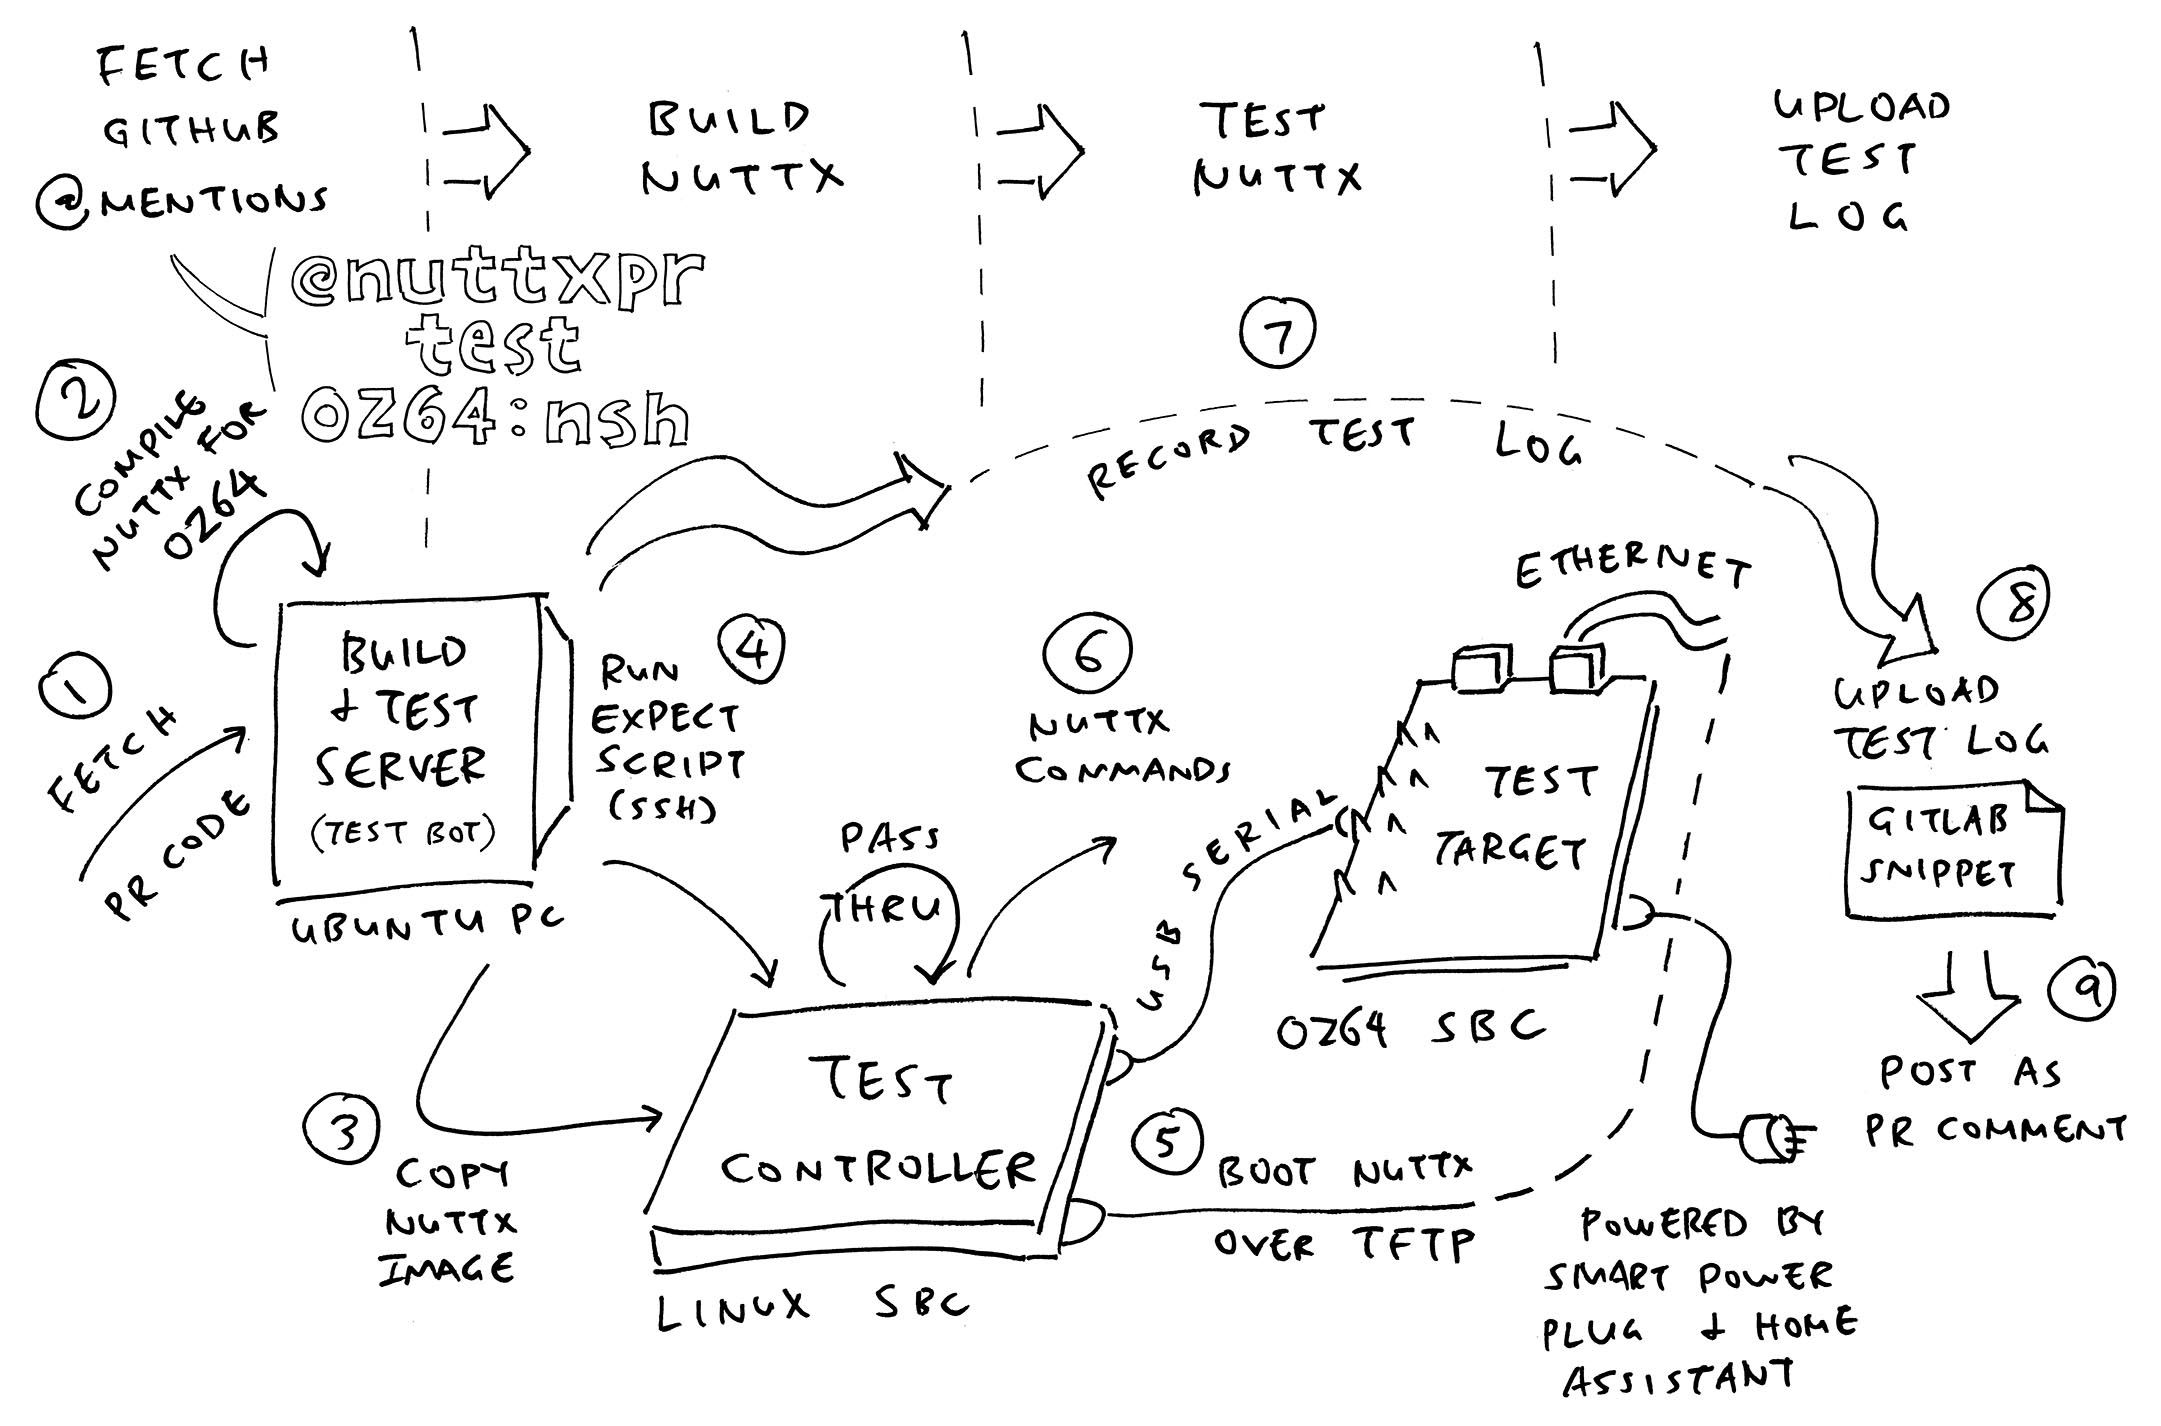 FETCH
GITHUB
@MENTIONS
BUILD
NUTTX
TEST
NUTTX
UPLOAD
TEST
LOG
@nuttxpr
test
oz64:nsh
1
FETCH
PR CODE
2
COMPILE
NUTTX FOR
OZ64
BUILD
& TEST
SERVER
(TEST BOT)
UBUNTU PC
3
COPY
NUTTX
IMAGE
4
RUN
EXPECT
SCRIPT
(SSH)
PASS
THRU
TEST
CONTROLLER
LINUX SBC
5
BOOT NUTTX
OVER TFTP
6
NUTTX
COMMANDS
USB SERIAL
ETHERNET
TEST
TARGET
OZ64 SBC
POWERED BY
SMART POWER
PLUG & HOME
ASSISTANT
7
RECORD TEST LOG
8
UPLOAD
TEST LOG
GITLAB
SNIPPET
9
POST AS
PR COMMENT